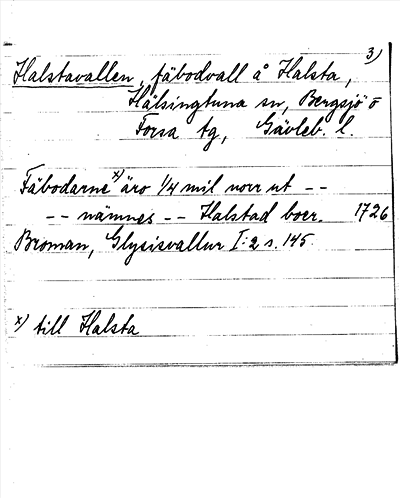 3)
Halstavallen, fäbodvall å Halsta,
Hälsingtuna sn, Bergsjö o
Forsa tg, Gävleb. l.
Fäbodarne x) äro 1/4 mil norr ut --
-- nämnes -- Halstad boer. 1726
Broman, Glysisvallur I:2 s. 145.
x) till Halsta